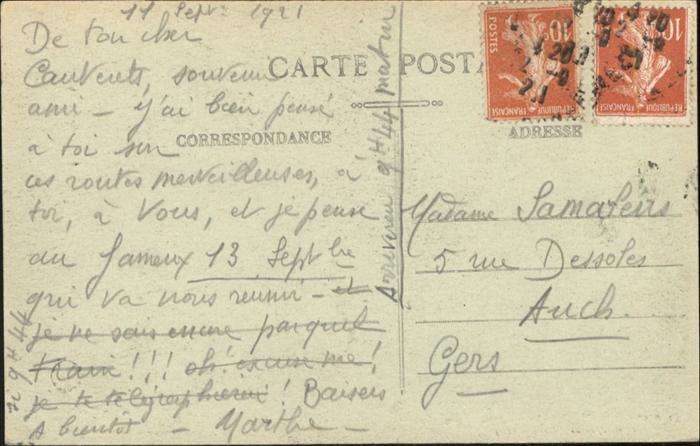 11 Sept. 1921
De ton cher
Cauterets, souvenir
ami - j'ai bien pensé
à toi sur
ces routes merveilleuses, à
toi, à Vous, et je pense
au fameux 13 Septbre
qui va nous réunir - et
je ne sais encore par quel
train !!! oh! excuse me!
je te télégraphierai! Baisers
A bientôt - Marthe -
Arriverai 9H44 matin
9H44
CARTE POSTALE
CORRESPONDANCE
ADRESSE
Madame Samalens
5 rue Dessoles
Auch
Gers
10c
POSTES
REPUBLIQUE FRANÇAISE
10c
REPUBLIQUE FRANÇAISE